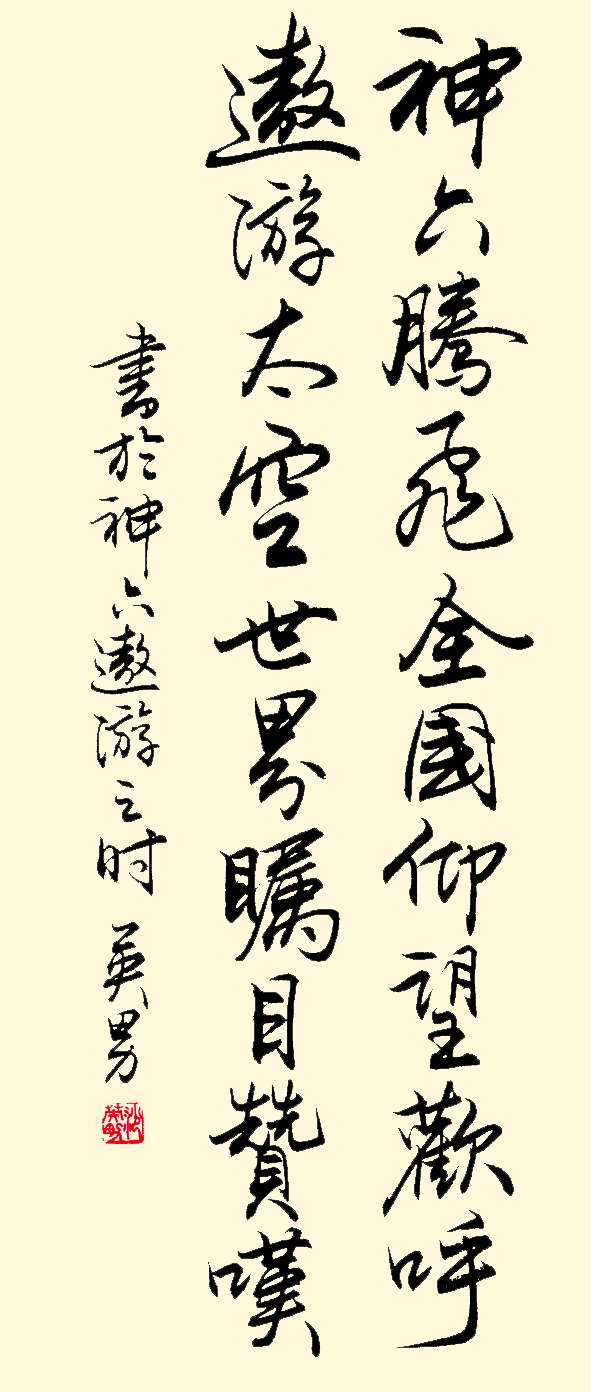 神六腾飛全國仰望歡呼
遨游太空世界矚目贊嘆
書於神六遨游之时 英男